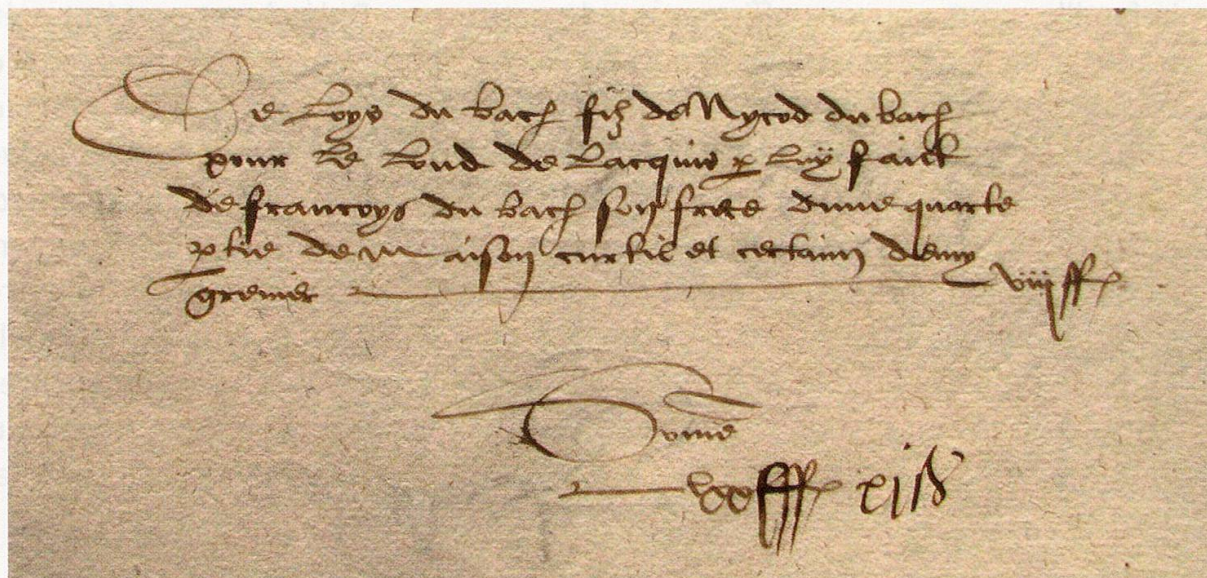 De Loys du bach filz de Nycod du bach
pour le loud de lacquis p luy faict
de francoys du bach son frere dune quarte
ptie de maison curtil et certain demy
grenier viij ff
Some
xij s